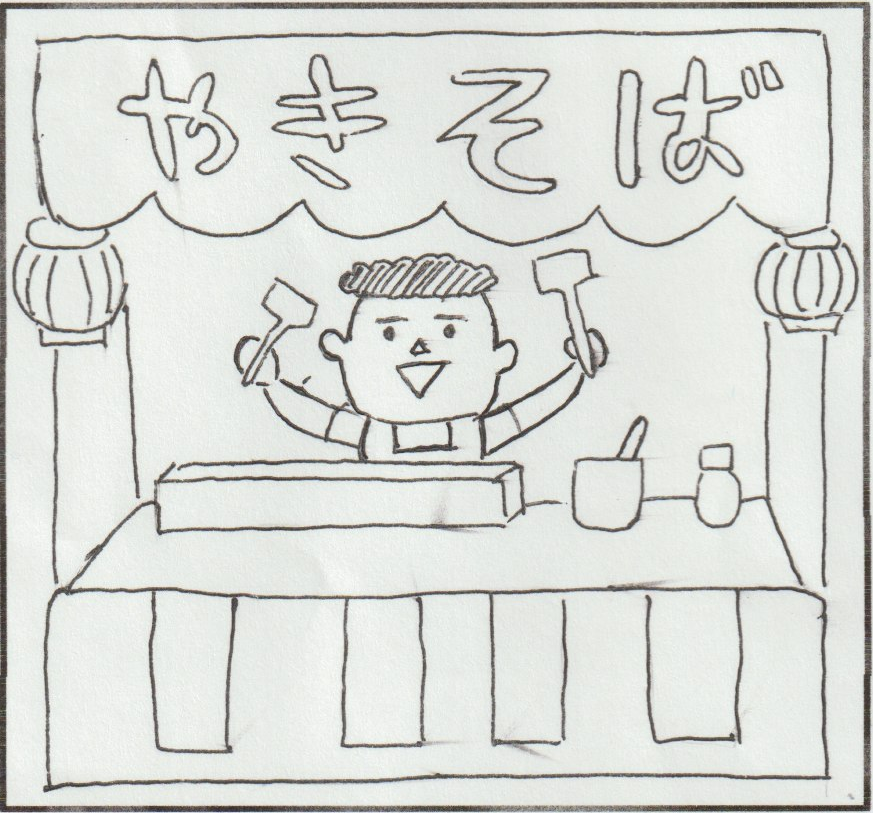 やきそば